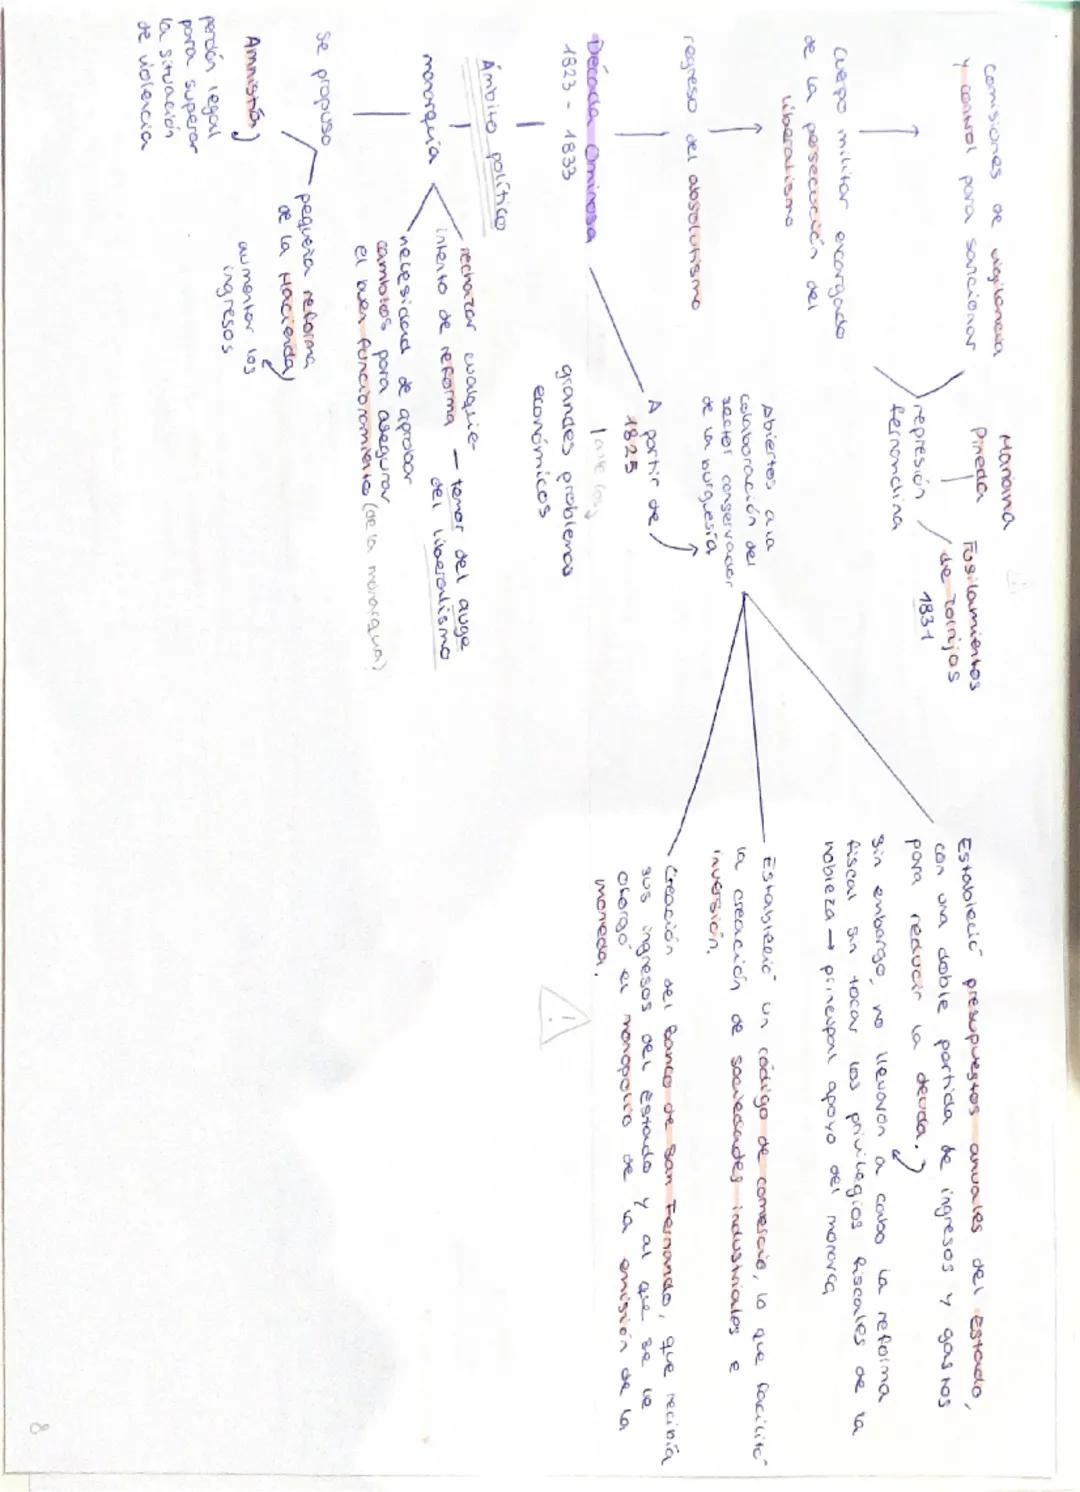 Comisiones de vigilancia
y control para sancionar
Mariana
Pineda
Fusilamientos
de Torrijos
1831
represión
fernandina
Cuerpo militar encargado
de la persecución del
liberalismo
regreso del absolutismo
Década Ominosa
1823 - 1833
Abiertos a la
colaboración del
sector conservador
de la burguesía
A partir de
1825
(ante los)
grandes problemas
económicos
Estableció presupuestos anuales del estado,
con una doble partida de ingresos y gastos
para reducir la deuda.
Sin embargo, no llevaron a cabo la reforma
fiscal sin tocar los privilegios fiscales de la
nobleza → principal apoyo del monarca
Estableció un código de comercio, lo que facilitó
la creación de sociedades industriales e
inversión.
Creación del Banco de San Fernando, que recibía
sus ingresos del Estado y al que se le
otorgó el monopolio de la emisión de la
moneda.
!
Ámbito político
monarquía
rechazar cualquier
intento de reforma — temor del auge
del liberalismo
necesidad de aprobar
cambios para asegurar
el buen funcionamiento (de la monarquía)
se propuso
pequeña reforma
de la Hacienda
aumentar los
ingresos
Amnistía
perdón legal
para superar
la situación
de violencia
8